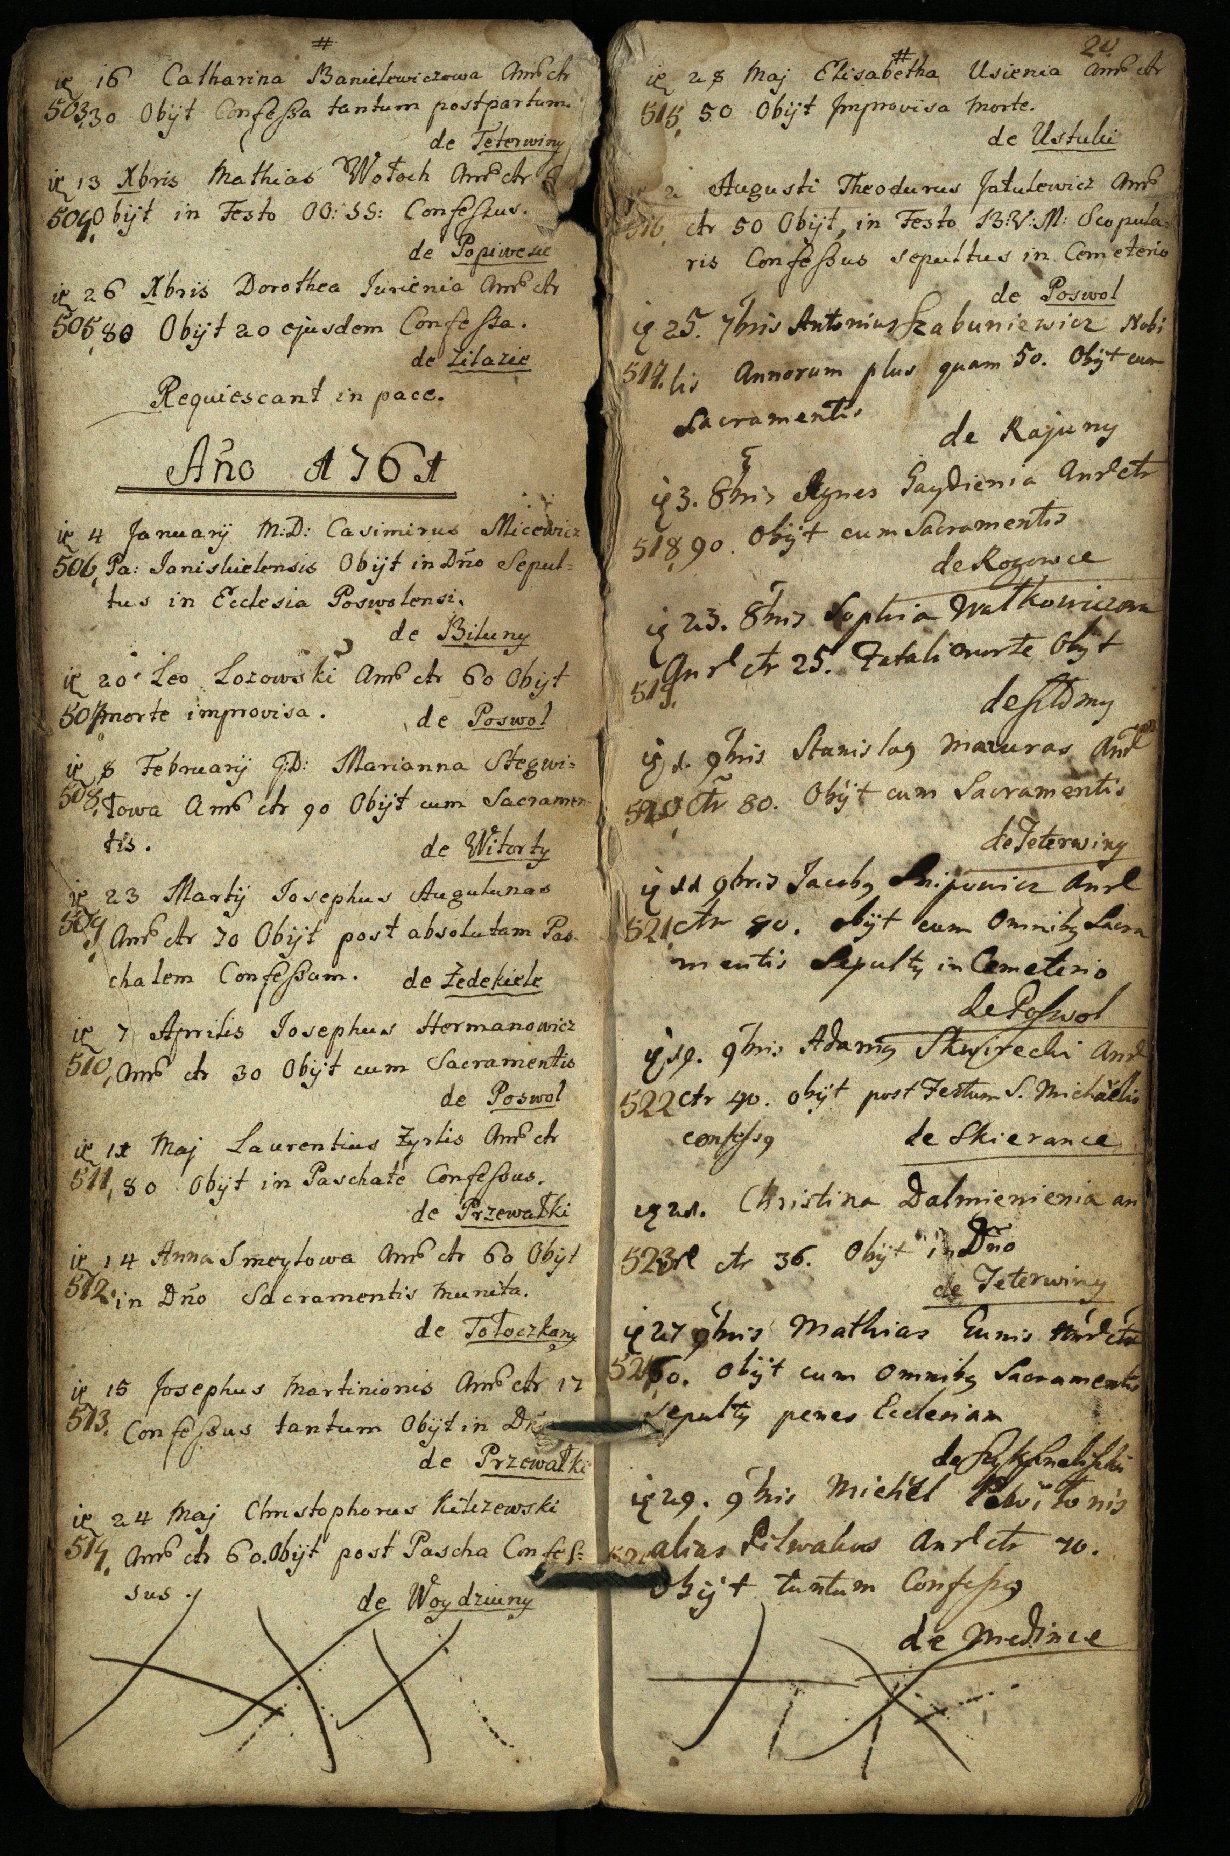 #
ię 16 Catharina Banielewiczowa Anō ctr
503. 30 Obijt Confeſsa tantum post partum
de Teterwiny
ię 13 Xbris Mathias Wołoch Anō ctr
504. Obijt in Festo OO: SS: Confeſsus.
de Popiwesie
ię 26 Xbris Dorothea Jurienia Anō ctr
505. 80 Obijt 20 ejusdem Confeſsa.
de Zilazie
Requiescant in pace.
Añо 1761
ię 4 Januarij M:D: Casimirus Micewicz
506. Pa: Janiskielensis Obijt in Dño Sepul=
tus in Ecclesia Poswolensi.
de Biluny
ię 20 Leo Lozowski Anō ctr 60 Obijt
507. morte improvisa. de Poswol
ię 8 Februarij G:D: Marianna Stegwi=
508. łowa Anō ctr 90 Obijt cum Sacramen=
tis. de Witorty
ię 23 Martij Josephus Augulunas
509. Anō ctr 70 Obijt post absolutam Pas=
chalem Confeſsam. de Żedekiele
ię 7 Aprilis Josephus Hermanowicz
510. Anō ctr 30 Obijt cum Sacramentis
de Poswol
ię 11 Maj Laurentius Zyrlis Anō ctr
511. 80 Obijt in Paschate Confeſsus.
de Przewałki
ię 14 Anna Smeytowa Anō ctr 60 Obijt
512. in Dño Sacramentis munita.
de Tołoczkany
ię 15 Josephus Martinionis Anō ctr 17
513. Confeſsus tantum Obijt in Dño
de Przewałki
ię 24 Maj Christophorus Kilizewski
514. Anō ctr 60. Obijt post Pascha Confeſ=
sus. de Woydziuny
20
#
ię 28 Maj Elisabetha Usienia Anō ctr
515. 50 Obijt Improvisa morte.
de Ustuki
ię 2 Augusti Theodurus Jatulewicz Anō
516. ctr 50 Obijt, in Festo B:V:M: Scopula=
ris Confeſsus sepultus in Cemeterio
de Poswol
ię 25. 7bris Antonius Szabuniewicz Nobi
517. lis Annorum plus quam 50. Obijt cum
Sacramentis
de Rajuny
ię 3. 8bris Agnes Gaydienia Anrl ctr
518. 90. Obijt cum Sacramentis
de Rogowce
ię 23. 8bris Sophia Walkowiczowa
Anrl ctr 25. Fatali morte Obijt
519.
ię 1. 9bris Stanislaꝯ Mazuras Anrl
520. ctr 80. Obijt cum Sacramentis
de Teterwiny
ię 11 9bris Jacobꝯ Snipowicz Anrl
521. ctr 80. obijt cum Omnibꝯ Sacra
mentis Sepultꝯ in Cemeterio
de Poſwol
ię 19. 9bris Adamꝯ Skwirecki Anrl
522 ctr 40. obijt post Festum S. Michaëlis
confeſsꝯ de Skierance
ię 21. Christina Dalmienienia an
523 rl ctr 36. Obijt in Dño
de Teterwiny
ię 27 9bris Mathias Gunis Anrl ctr
524 60. Obijt cum omnibꝯ Sacramentis
Sepultꝯ penes Ecclesiam
ię 29. 9bris Michël Pilwitonis
alias Pilwalus Anrl ctr 70.
Obijt tantum Confeſsꝯ
de Medince